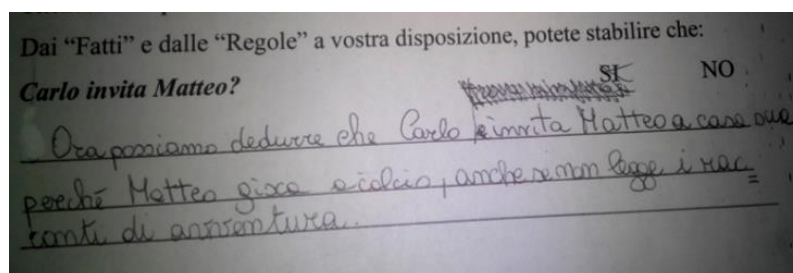 Dai “Fatti” e dalle “Regole” a vostra disposizione, potete stabilire che:
Carlo invita Matteo?
SI NO
Ora possiamo dedurre che Carlo invita Matteo a casa sua
perché Matteo gioca a calcio, anche se non legge i rac=
conti di avventura.